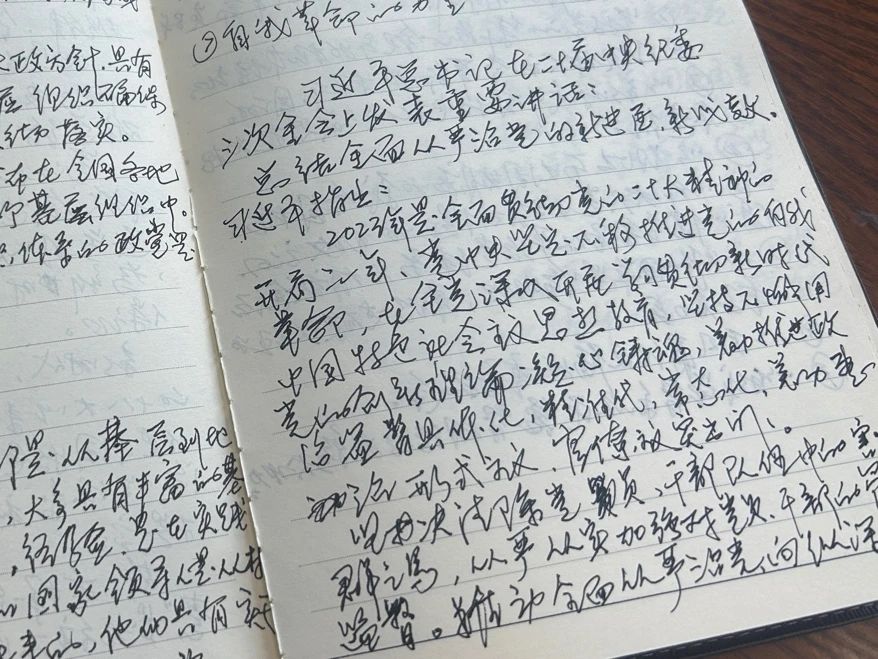 大政方针,具有
组织确保
落实。
布在全国各地
基层组织中。
体系的政党是
是,从捧
层到地
,大多具有丰富的基
,经
,是在实践
国家领导人是从村
来的,他们具有实
②自我革命的力量
习近平总书记在二十届中央纪委
三次全会上发表重要讲话:
总结全面从严治党的新进展,新成效。
习近平指出:
2023年是全面贯彻党的二十大精神的
开局之年,党中央坚定不移推进党的自我
革命,在全党深入开展学习贯彻新时代
中国特色社会主义思想教育,坚持不懈用
党的创新理论凝心铸魂,着力推进政
治监督具体化,精准化,常态化,着力整
治形式主义,官僚主义突出问、
坚决清除党员,干部队伍中的害
群之马,从严从实加强对党员,干部的管
监督。推动全面从严治党向纵深